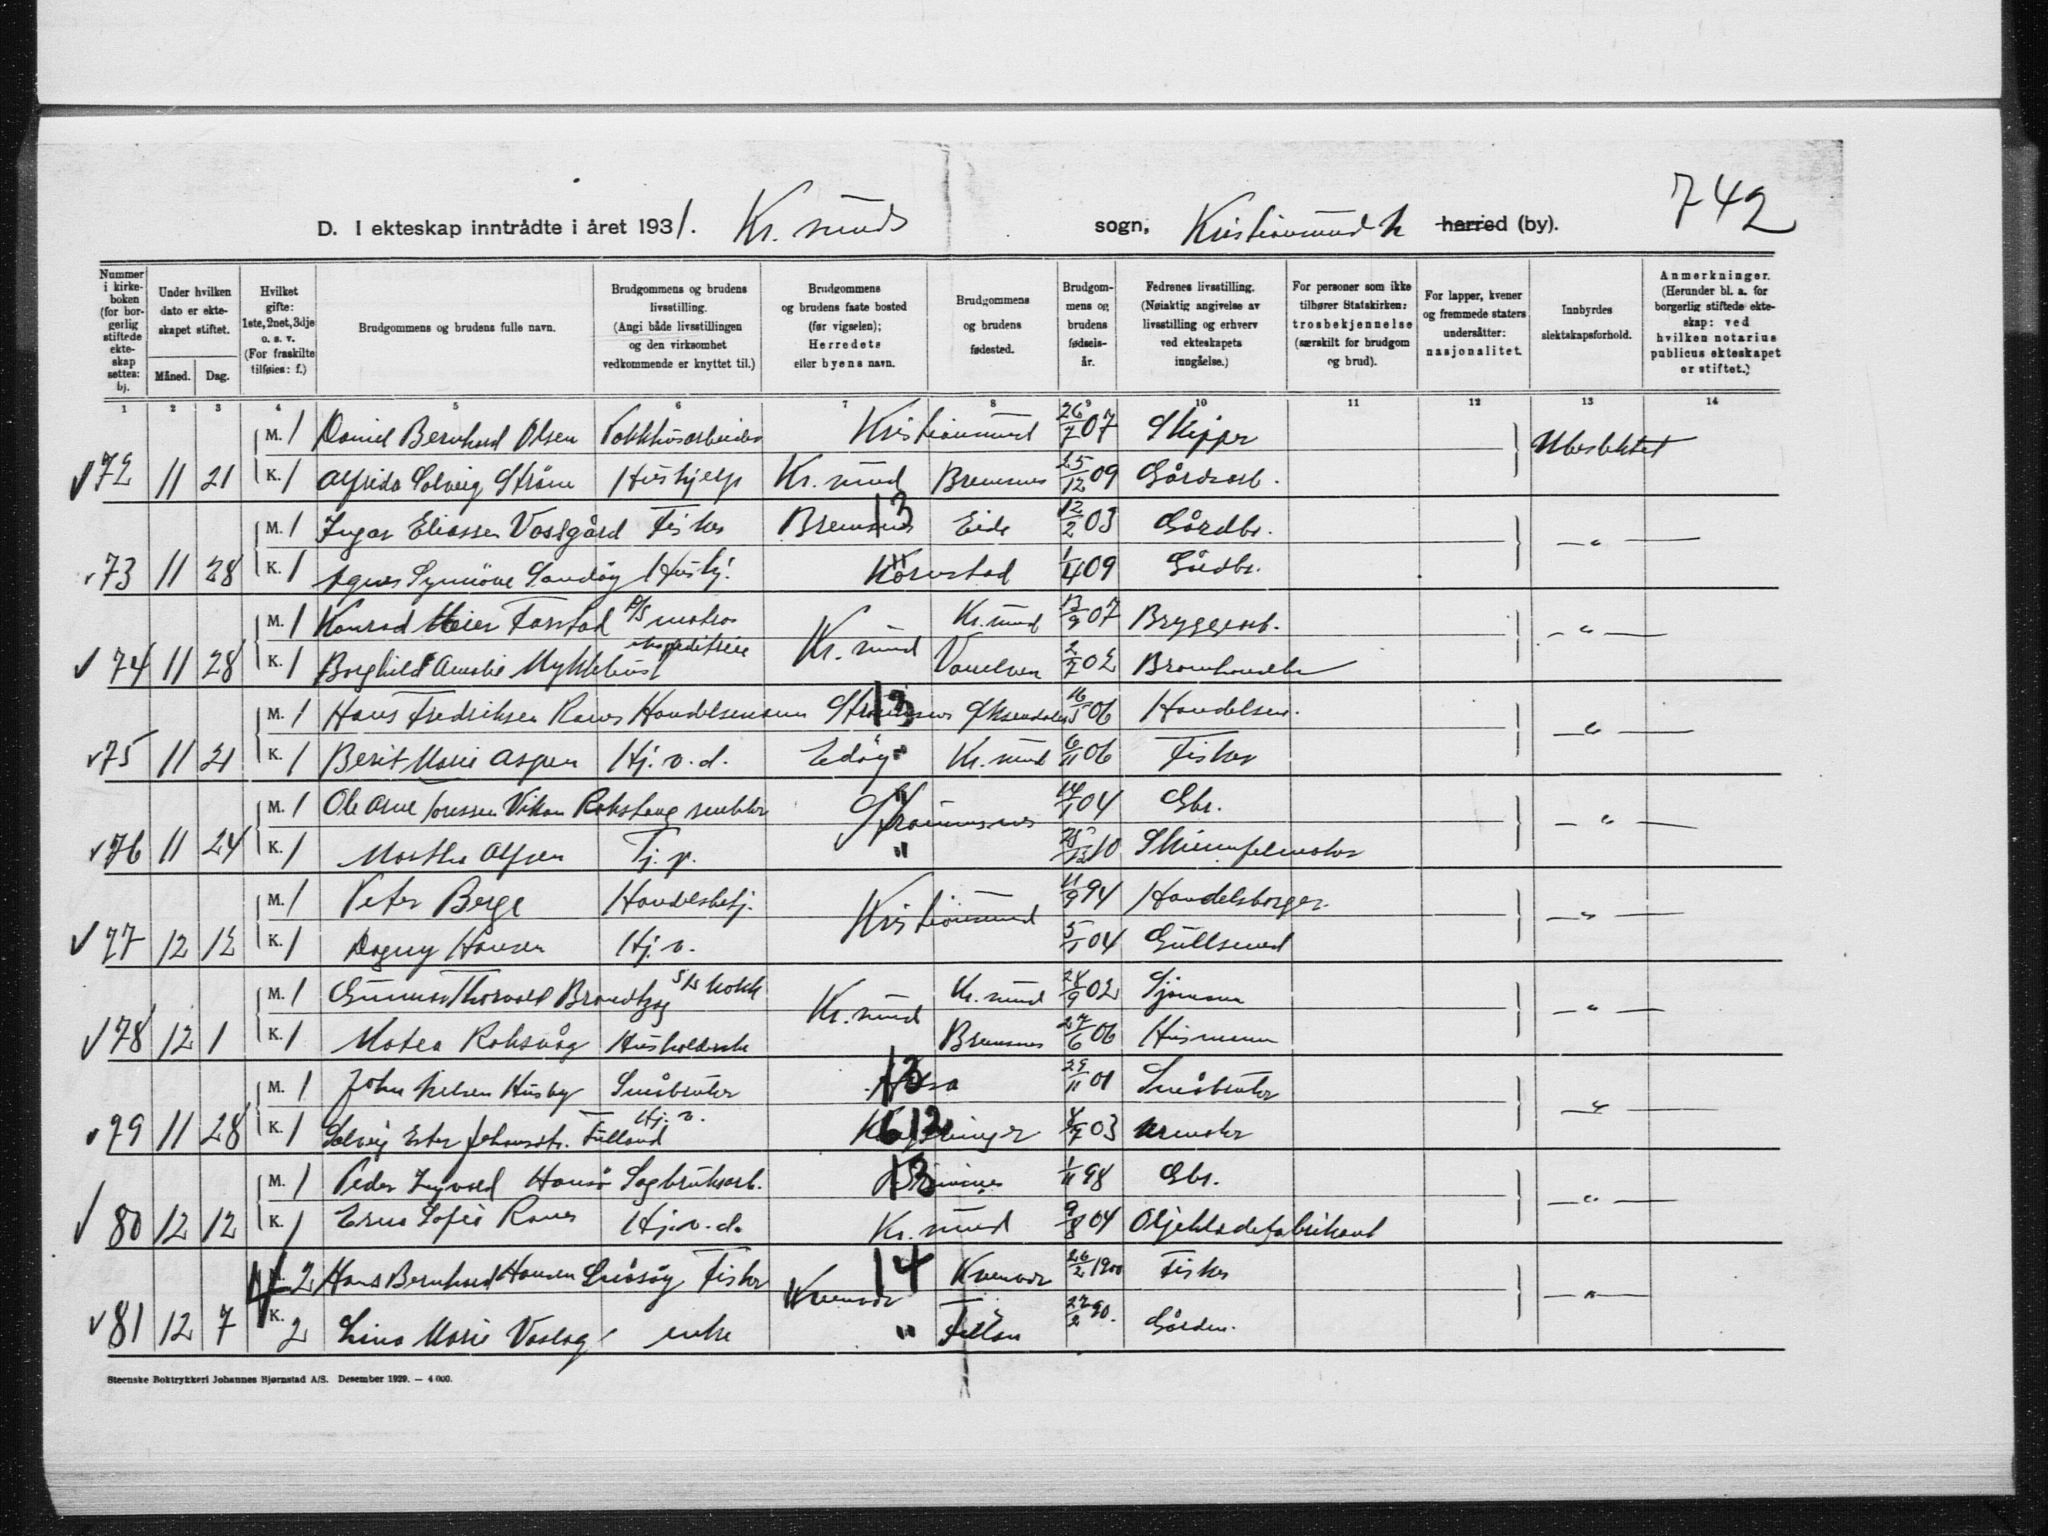 742
D. I ekteskap inntrådte i året 1931. Kr. sunds sogn, Kristiansund N herred (by).
Nummer i kirkeboken (for borgerlig stiftede ekteskap settes: bj.
Under hvilken dato er ekteskapet stiftet.
Måned. Dag.
Hvilket gifte: 1ste, 2net, 3dje o. s. v. (For fraskilte tilføies: f.)
Brudgommens og brudens fulle navn.
Brudgommens og brudens livsstilling. (Angi både livsstillingen og den virksomhet vedkommende er knyttet til.)
Brudgommens og brudens faste bosted (før vigselen); Herredets eller byens navn.
Brudgommens og brudens fødested.
Brudgommens og brudens fødselsår.
Fedrenes livsstilling. (Nøiaktig angivelse av livsstilling og erhverv ved ekteskapets inngåelse.)
For personer som ikke tilhører Statskirken: trosbekjennelse (særskilt for brudgom og brud).
For lapper, kvener og fremmede staters undersåtter: nasjonalitet.
Innbyrdes slektskapsforhold.
Anmerkninger. (Herunder bl. a. for borgerlig stiftede ekteskap: ved hvilken notarius publicus ekteskapet er stiftet.)
1 2 3 4 5 6 7 8 9 10 11 12 13 14
M. 1 Daniel Bernhard Olsen Kristiansund 26/7 07 Skipper Ubeslektet
72 11 21 K. 1 Alfrida Solveig Strøm Hushjelp Kr. sund Bremsnes 25/12 09 Gårdsarb.
M. 1 Ingar Eliassen Fisker Bremsnes 13 Eide 12/2 03 Gårdbr. — " —
73 11 28 K. 1 Agnes Synnöve Sandöy Hushj. Kornstad " 1/4 09 Gårdbr.
M. 1 Konrad Meier Farstad D/S matros Kr. sund Kr. sund 13/9 07 Bryggearb. — " —
74 11 28 K. 1 Borghild Amalie Myklebust ekspeditrise Vanelven 2/7 02
M. 1 Hans Fredriksen Ranes Handelsmann Straumsnes 13 Øksendalen 16/5 06 Handelsm. — " —
75 11 21 K. 1 Berit Marie Aspen Hj. v. d. Edöy " Kr. sund 6/11 06 Fisker
M. 1 Ole Arne Vikan Straumsnes " 14/1 04 Gbr. — " —
76 11 24 K. 1 Martha Alfsen Tj. p. " 10
M. 1 Peter Berge Handelsbetj. Kristiansund 11/9 94 Handelsborger. — " —
77 12 12 K. 1 Dagny Hansen Hj. v. 5/1 04 Gullsmed
M. 1 Gunnar Thorvald Brandtzæg S/S kokk Kr. sund Kr. sund 28/9 02 Sjømann — " —
78 12 1 K. 1 Matea Roksvåg Husholderske Bremsnes 27/6 06 Husmann
M. 1 John Nelsen Husby Småbruker Halsa 13 29/11 01 Småbruker — " —
79 11 28 K. 1 Solveig Ester Johansdtr. Hj. v. Kvernes 612 7 03
M. 1 Peder Ingvald Sagbruksarb. Bremsnes 13 1/11 98 Gbr. — " —
80 12 12 K. 1 Erna Sofie Ranes Hj. v. d. Kr. sund 9/8 04 Oljeklædefabrikant
2 Hans Bernhard Hansen Fisker Kvenvær 14 Kvenvær 26/2 1900 Fisker — " —
81 12 7 K. 2 Lina Marie Vaslag enke " Fillan 27/2 90. Gårdm.
Steenske Boktrykkeri Johannes Bjørnstad A/S. Desember 1929. — 4 000.